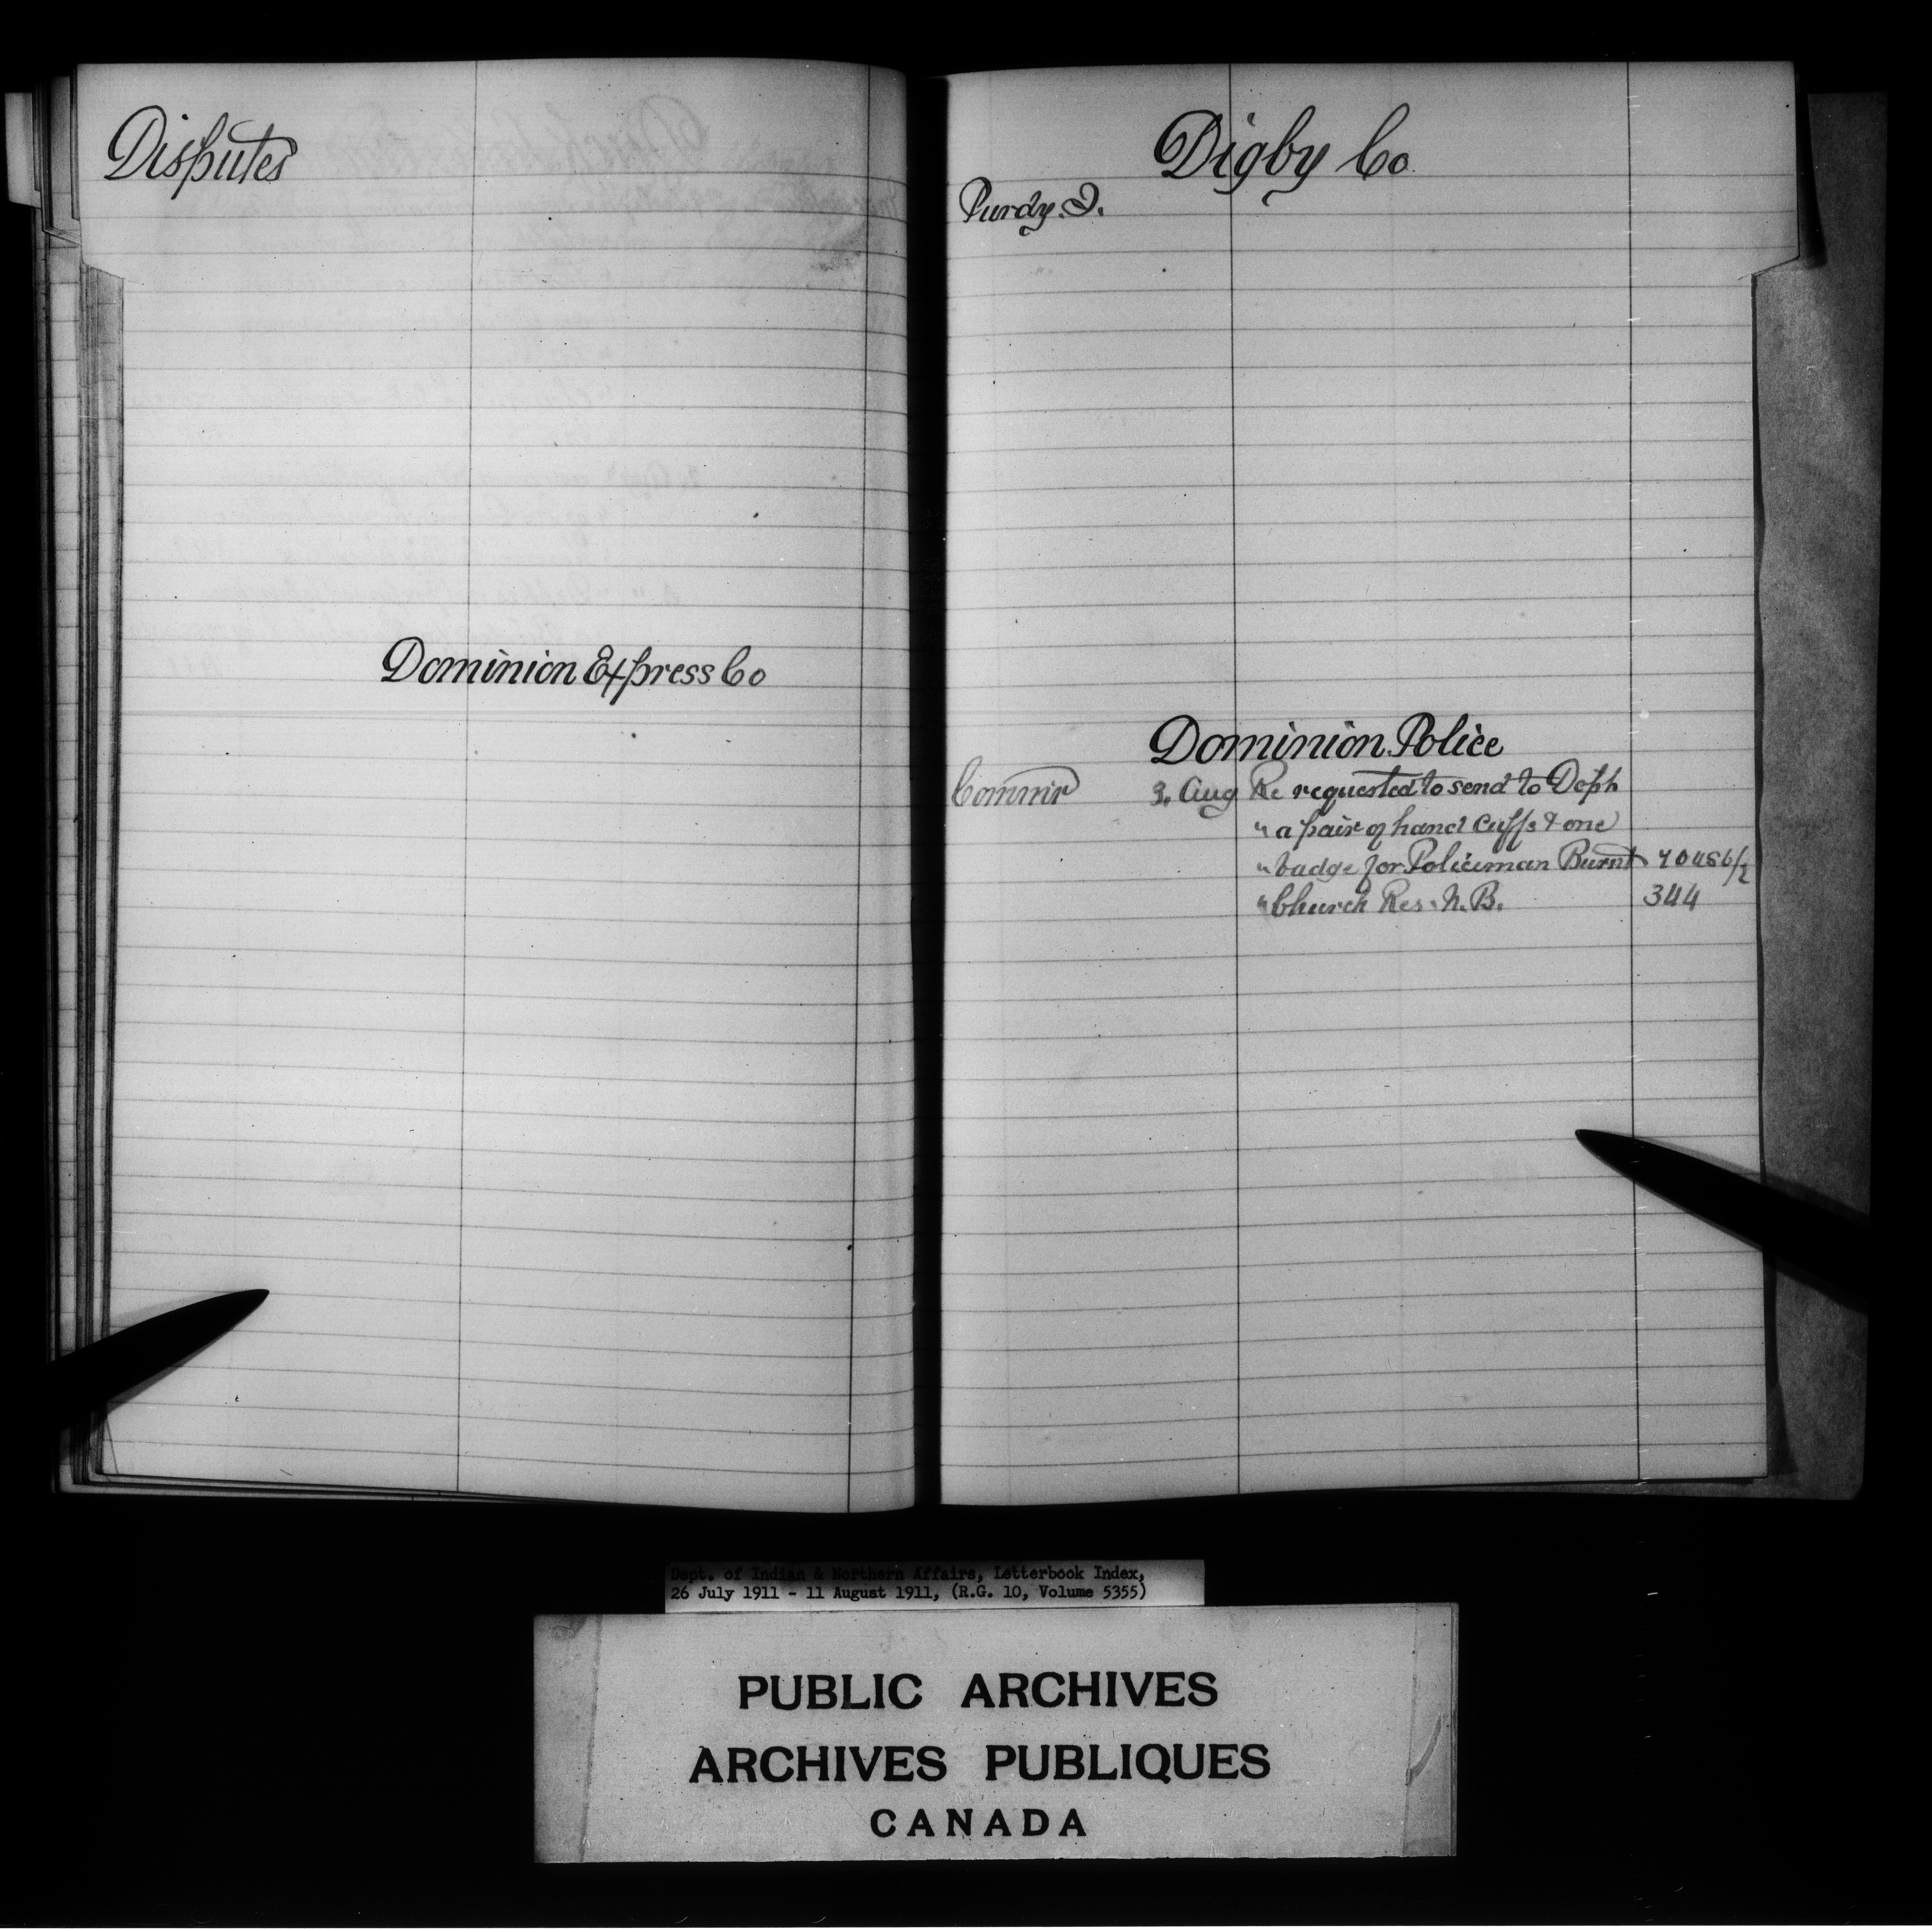 Disputes
Dominion Express Co
Digby Co
Purdy. J.
Dominion Police
Commr 3. Aug Re requested to send to Deph
" a pair of hand cuffs & one
" badge for Policeman Burnt
" Church Res. N. B. 344
Dept. of Indian & Northern Affairs, Letterbook Index,
26 July 1911 - 11 August 1911, (R.G. 10, Volume 5355)
PUBLIC ARCHIVES
ARCHIVES PUBLIQUES
CANADA